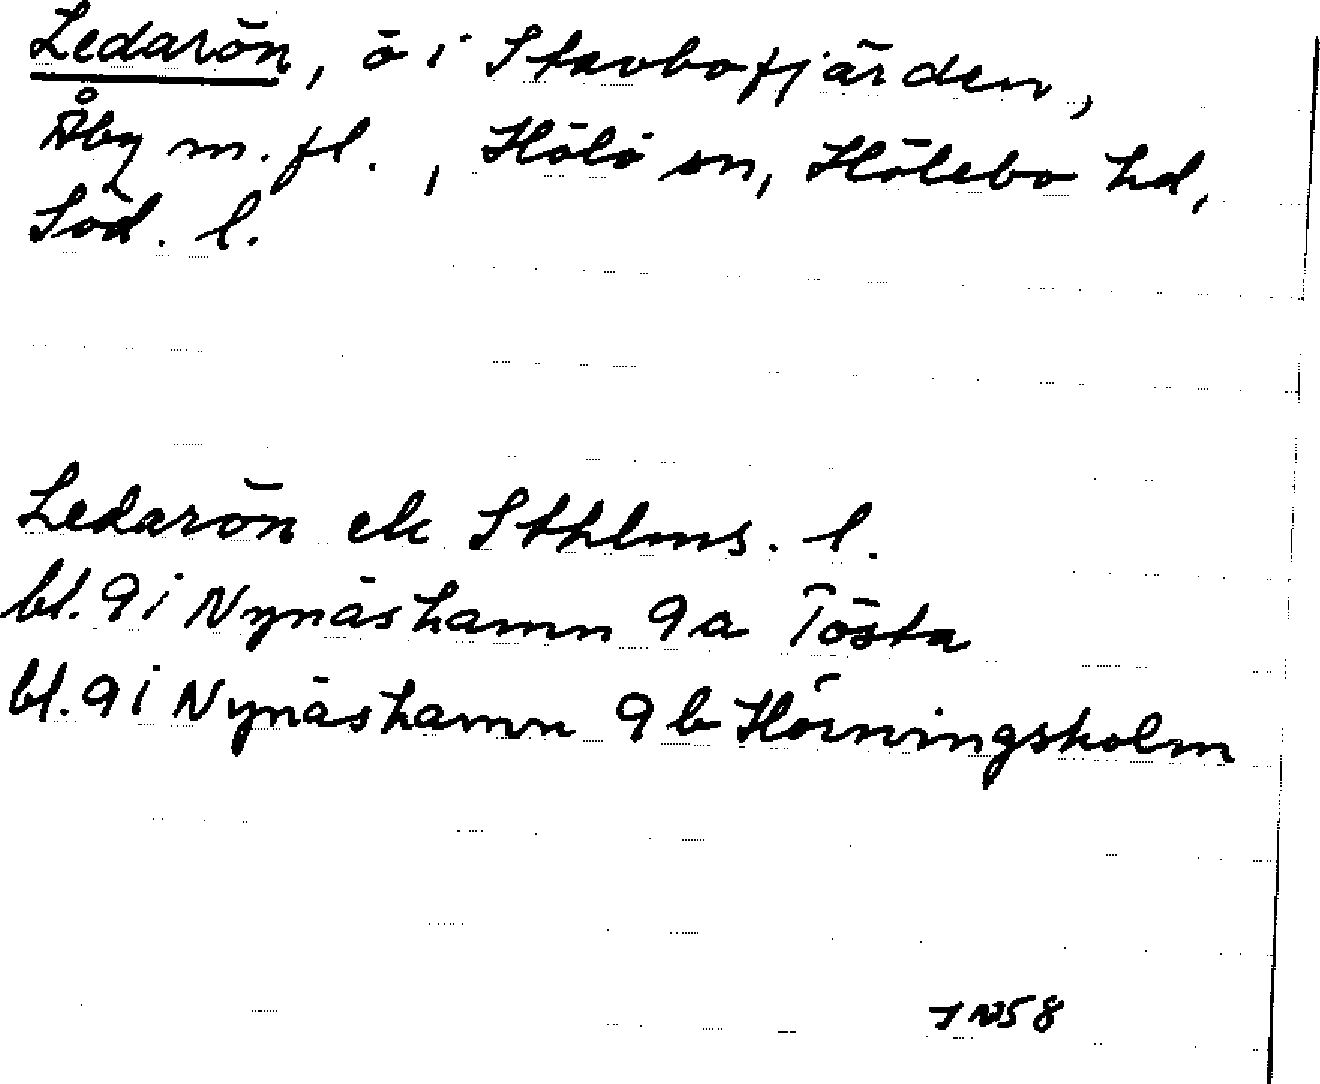 Ledarön, ö i Stavbofjärden,
Åby m. fl., Hölö sn, Hölebo hd,
Söd. l.
Ledarön ek Sthlms. l.
bl. 9 i Nynäshamn 9 a Tösta
bl. 9 i Nynäshamn 9 b Hörningsholm
58